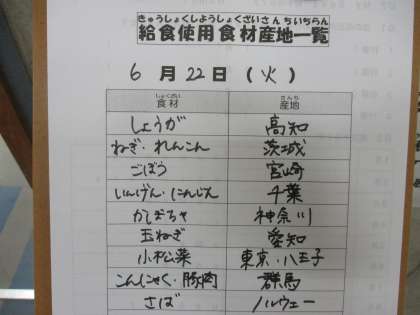 きゅうしょくしようしょくざいさんちいちらん
給食使用食材産地一覧
6月22日(火)
しょくざい さんち
食材 産地
しょうが 高知
ねぎ・れんこん 茨城
ごぼう 宮崎
いんげん・にんじん 千葉
かぼちゃ 神奈川
玉ねぎ 愛知
小松菜 東京・八王子
こんにゃく・豚肉 群馬
さば ノルウェー